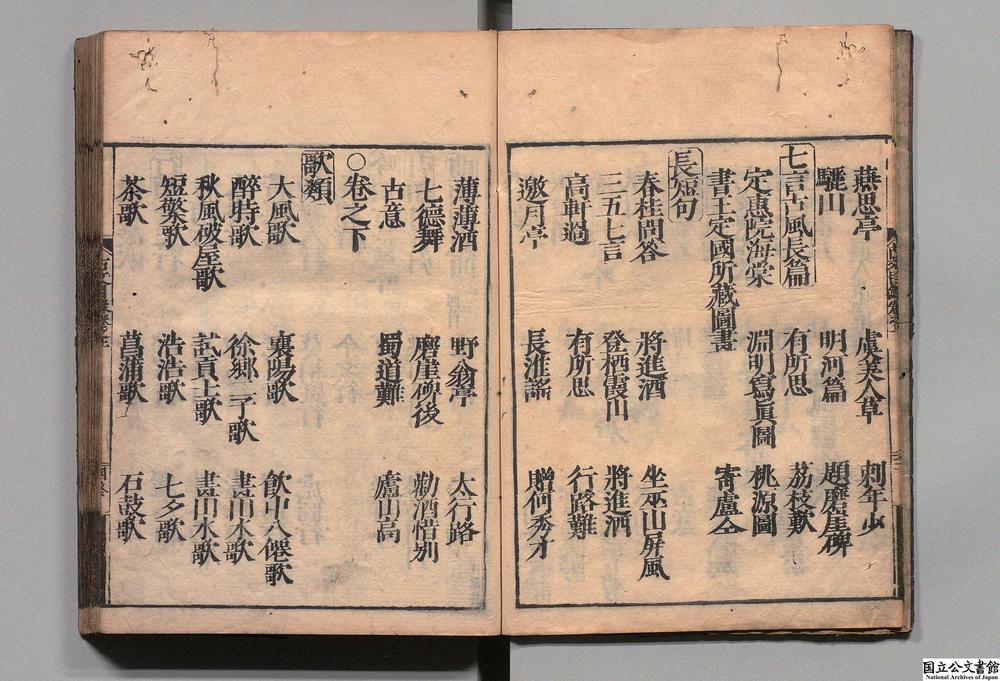 燕思亭　虞美人草　刺年少
驪山　明河篇　題磨崖碑
七言古風長篇　有所思　茘枝歎
定惠院海棠　淵明寫眞圖　桃源圖
書王定國所藏圖畫　寄盧仝
長短句
春桂問答　將進酒　坐巫山屏風
三五七言　登栖霞山　將進酒
高軒過　有所思　行路難
邀月亭　長淮謠　贈何秀才
薄薄酒　野翁亭　太行路
七德舞　磨崖碑後　勸酒惜別
古意　蜀道難　廬山高
○卷之下
歌類
大風歌　襄陽歌　飲中八僊歌
醉時歌　徐卿二子歌　畫山水歌
秋風破屋歌　試貢士歌　畫山水歌
短檠歌　浩浩歌　七夕歌
茶歌　菖蒲歌　石鼓歌
国立公文書館
National Archives of Japan